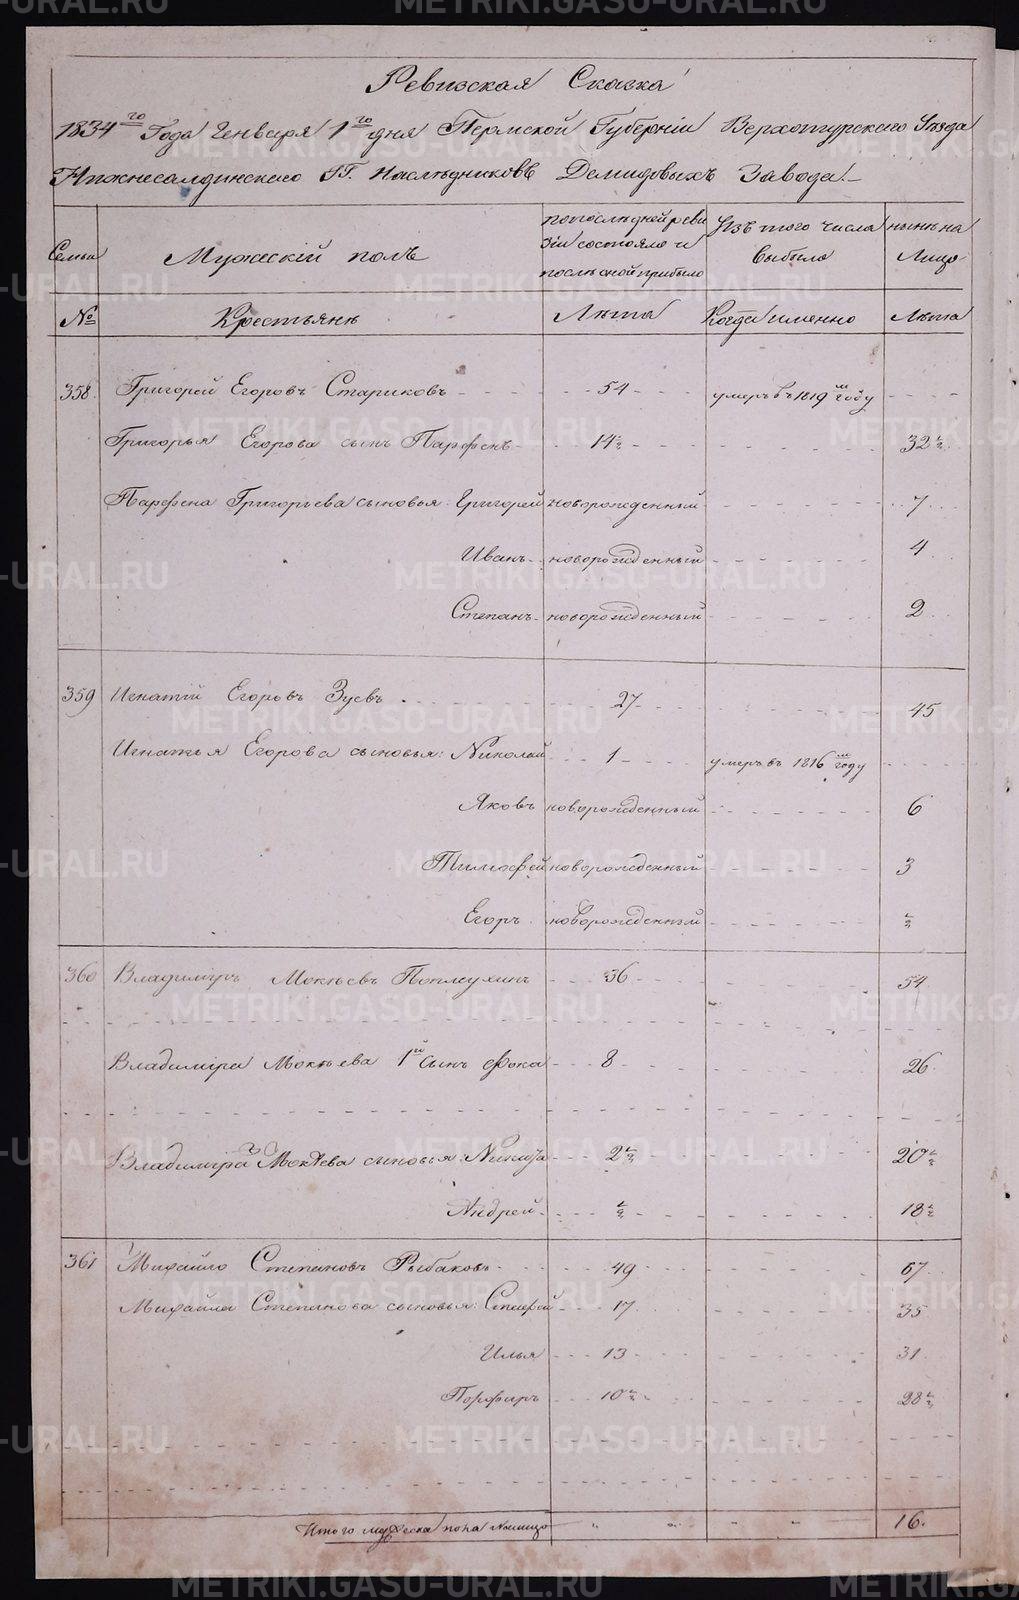 Ревизская Сказка
1834го Года Генваря 1го дня Пермской Губерніи Верхотурскаго Уезда
Нижнесалдинскаго ГГ. Наследниковъ Демидовыхъ Завода.
Семьи
Мужескій полъ
по последней реви
зіи состояло и
после оной прибыло
Изъ того числа
выбыло
ныне на
Лицо
№
Крестьяне
Лета
Когда именно
Лета
358. Григорей Егоровъ Стариковъ 54 умеръ въ 1819м году
Григорья Егорова сынъ Парфенъ 14½ 32½
Парфена Григорьева сыновья: Григорей новорожденный 7
Иванъ новорожденный 4
Степанъ новорожденный 2
359 Игнатій Егоровъ Зуевъ 27 45
Игнатья Егорова сыновья: Николай 1 умеръ въ 1816м году
Яковъ новорожденный 6
Тимофей новорожденный 3
Егоръ новорожденный ½
360 Владимиръ Мокеевъ 36 54
Владиміра Мокеева 1й сынъ Фока 8 26
Владиміра Мокеева сыновья: Никита 2½ 20½
Андрей ½ 18½
361 Михайло Степановъ Рыбаковъ 49 67
Михайла Степанова сыновья: Сергей 17 35
Илья 13 31
Порфиръ 10½ 28½
Итого мужеска пола налицо 16.
METRIKI.GASO-URAL.RU